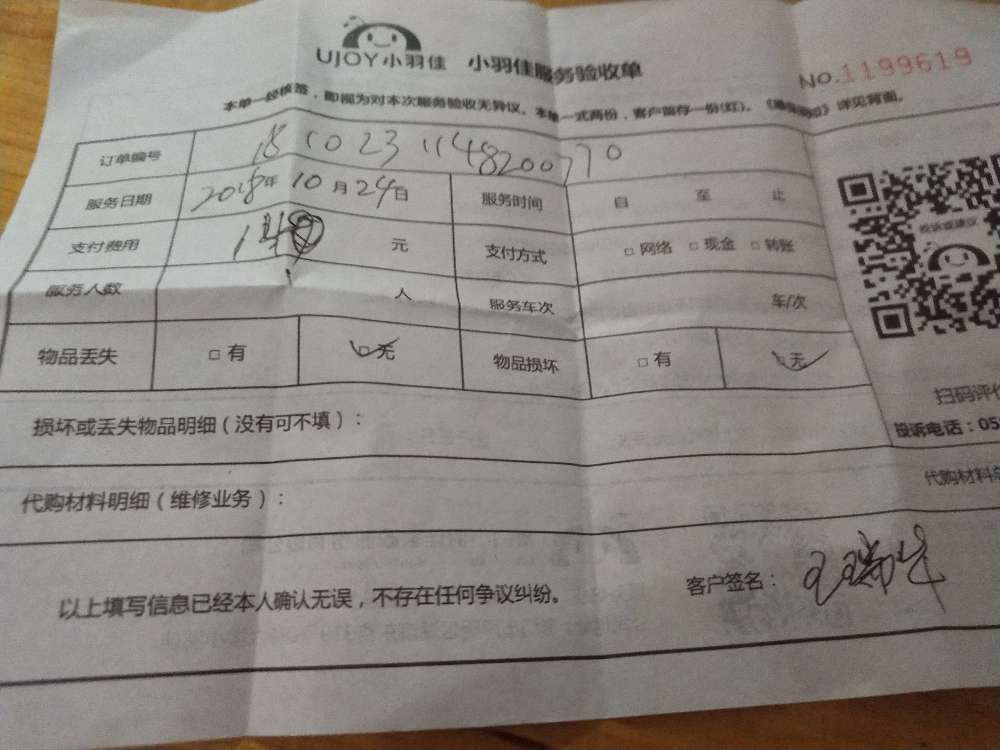 UJOY小羽佳 小羽佳服务验收单
NO.1199619
本单一经核签，即视为对本次服务验收无异议。本单一式两份，客户留存一份(红)。《》详见背面。
订单编号 1810231148200770
服务日期 2018年10月24日 服务时间 自 至 止
支付费用 元 支付方式 □网络 □现金 □转账
服务人数 人 服务车次 车/次
物品丢失 □有 □无 物品损坏 □有 □无
投诉或建议
扫码评价
投诉电话：05
损坏或丢失物品明细（没有可不填）：
代购材料明细（维修业务）：
代购材料
以上填写信息已经本人确认无误，不存在任何争议纠纷。
客户签名：王瑞华